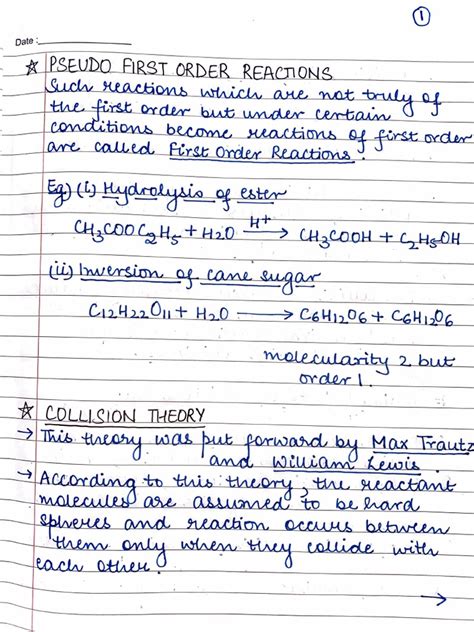 1
Date :
☆ PSEUDO FIRST ORDER REACTIONS
Such reactions which are not truly of
the first order but under certain
conditions become reactions of first order
are called First Order Reactions.
Eg) (i) Hydrolysis of ester
CH3COOC2H5 + H2O H+ → CH3COOH + C2H5OH
(ii) Inversion of cane sugar
C12H22O11 + H2O → C6H12O6 + C6H12O6
molecularity 2 but
order 1.
☆ COLLISION THEORY
→ This theory was put forward by Max Trautz
and William Lewis.
→ According to this theory, the reactant
molecules are assumed to be hard
spheres and reaction occurs between
them only when they collide with
each other.
→